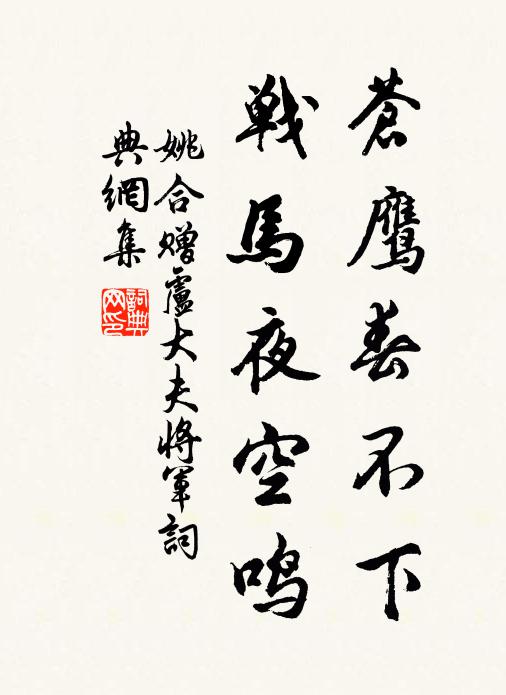 蒼鷹春不下
戰馬夜空鳴
姚合贈盧大夫將軍詞
典網集
詞典网印